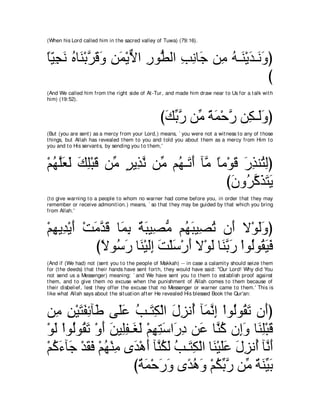 (When his Lord called him in the sacred valley of Tuwa) (79:16).
(وَنَـدَيْنَـهُ مِن جَانِبِ الطُّورِ الاٌّيْمَنِ وَقَرَّبْنَاهُ نَجِيّاً
)
(And We called him from the right side of At-Tur, and made him draw near to Us for a talk with him) (19:52).
(وَلَـكِن رَّحْمَةً مِّن رَّبِّكَ)
(But (you are sent) as a mercy from your Lord,) means, `you were not a witness to any of those things, but Allah has revealed them to you and told you about them as a mercy from Him to you and to His servants, by sending you to them,'
(لِتُنذِرَ قَوْماً مَّآ أَتَـهُم مِّن نَّذِيرٍ مِّن قَبْلِكَ لَعَلَّهُمْ
يَتَذَكَّرُونَ)
(to give warning to a people to whom no warner had come before you, in order that they may remember or receive admonition.) means, `so that they may be guided by that which you bring from Allah.'
(وَلَوْلا أَن تُصِيبَهُم مُّصِيبَةٌ بِمَا قَدَّمَتْ أَيْدِيهِمْ
فَيَقُولُوا رَبَّنَا لَوْلا أَرْسَلْتَ إِلَيْنَا رَسُولاً)
(And if (We had) not (sent you to the people of Makkah) -- in case a calamity should seize them for (the deeds) that their hands have sent forth, they would have said: "Our Lord! Why did You not send us a Messenger) meaning: `and We have sent you to them to establish proof against them, and to give them no excuse when the punishment of Allah comes to them because of their disbelief, lest they offer the excuse that no Messenger or warner came to them.' This is like what Allah says about the situation after He revealed His blessed Book the Qur'an:
(أَن تَقُولُواْ إِنَّمَآ أُنزِلَ الْكِتَـبُ عَلَى طَآئِفَتَيْنِ مِن
قَبْلِنَا وَإِن كُنَّا عَن دِرَاسَتِهِمْ لَغَـفِلِينَ أَوْ تَقُولُواْ لَوْ
أَنَّآ أُنزِلَ عَلَيْنَا الْكِتَـبُ لَكُنَّآ أَهْدَى مِنْهُمْ فَقَدْ جَآءَكُمْ
بَيِّنَةٌ مِّن رَّبِّكُمْ وَهُدًى وَرَحْمَةٌ)